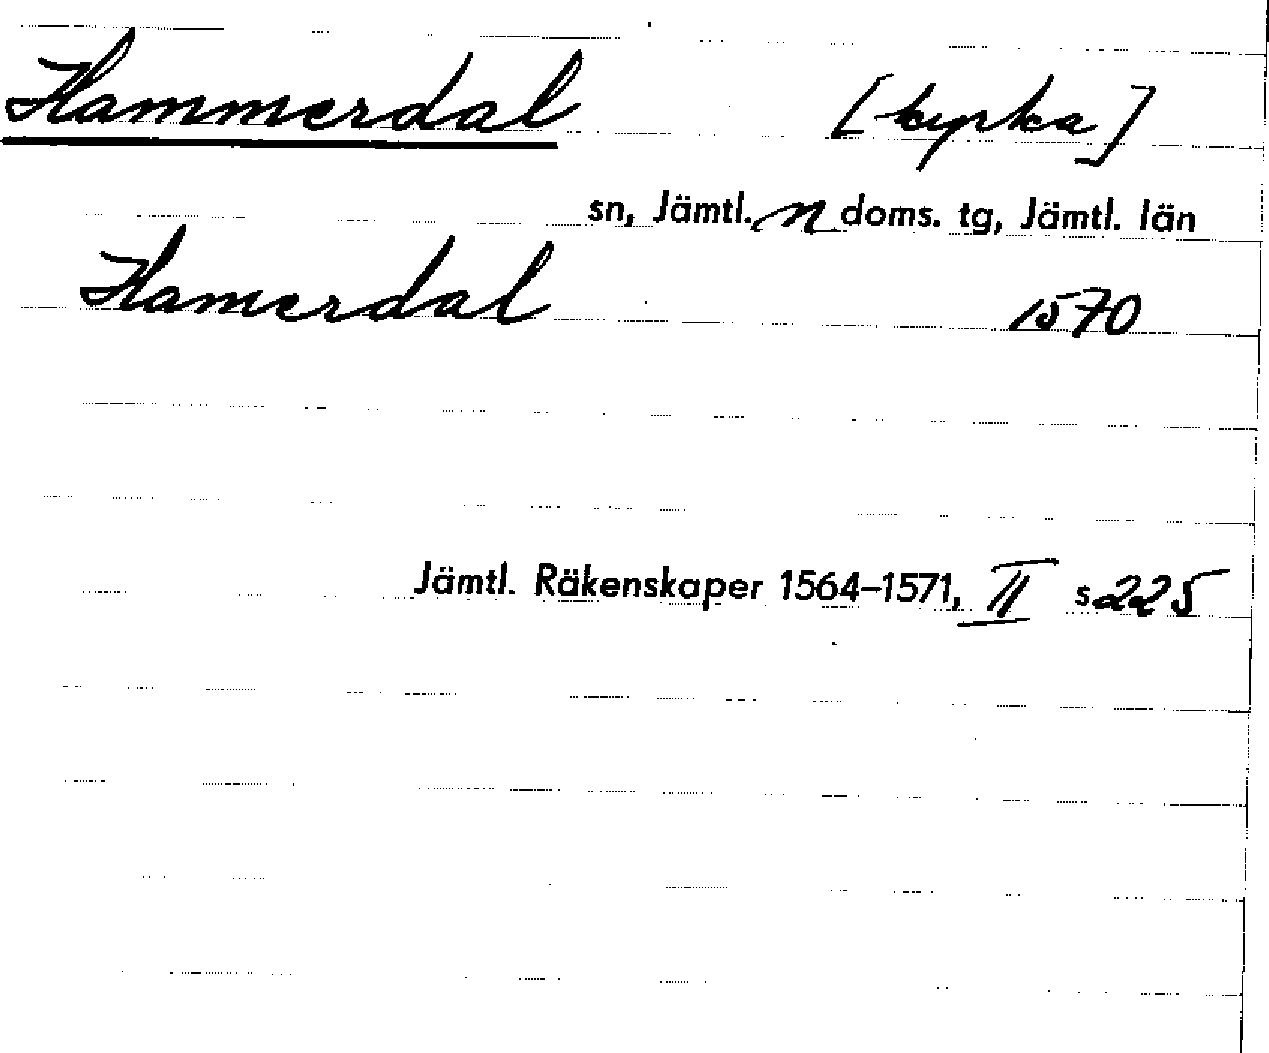 Hammerdal [kyrka]
sn, Jämtl. n doms. tg, Jämtl. län
Hamerdal 1570
Jämtl. Räkenskaper 1564–1571, II s 225